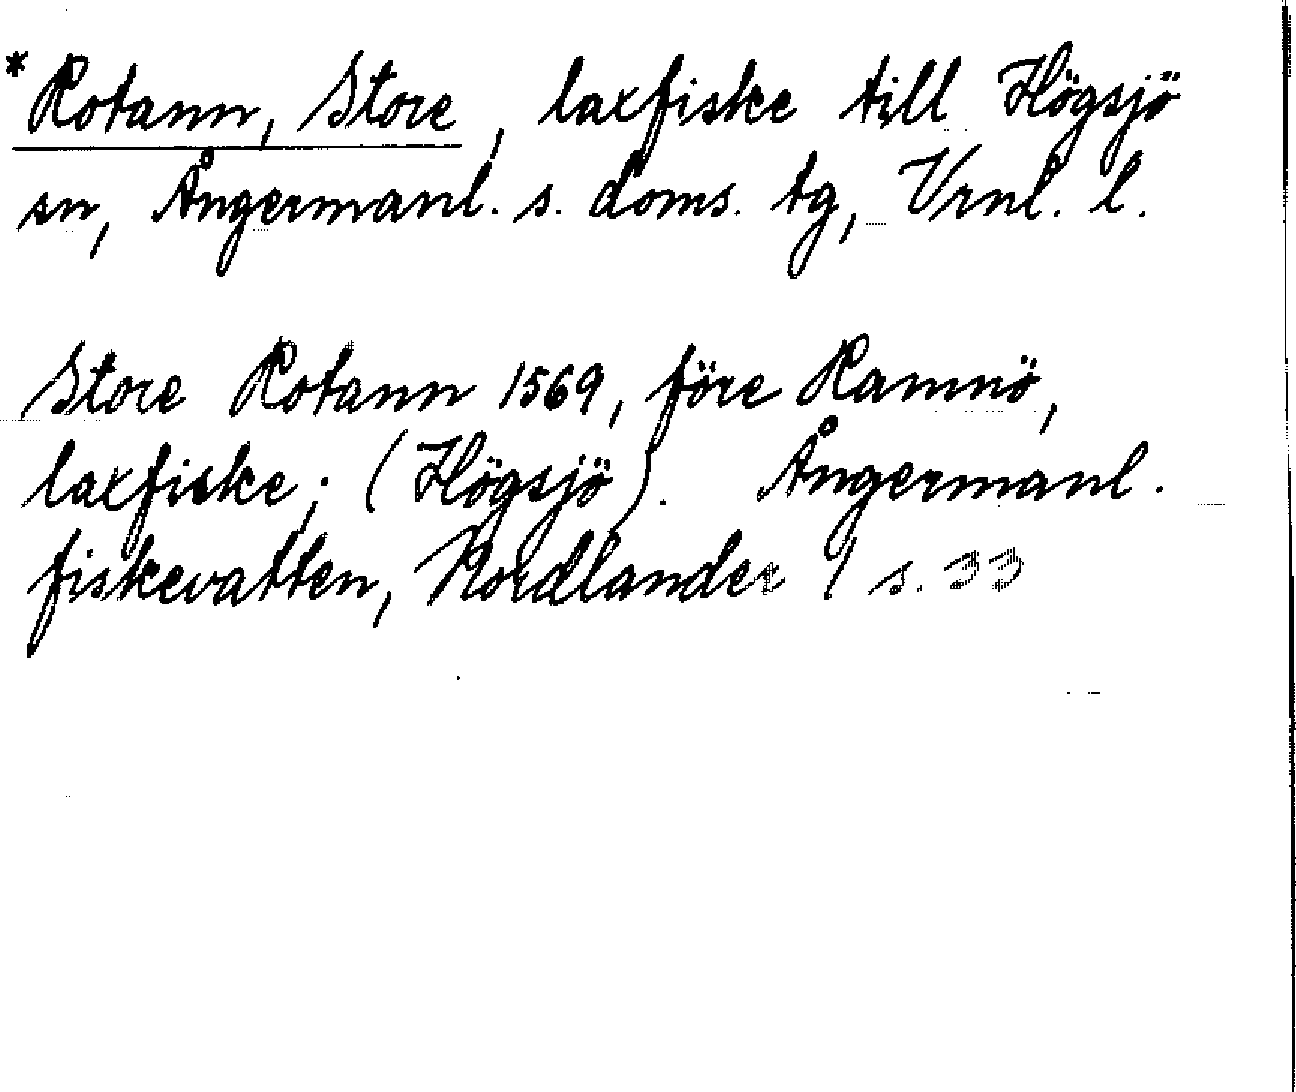 *Rotann, Store, laxfiske till Högsjö
sn, Ångermanl. s. doms. tg, Vrnl. l.
Store Rotann 1569, före Ramnö,
laxfiske; (Högsjö). Ångermanl.
fiskevatten, Nordlander I s. 33